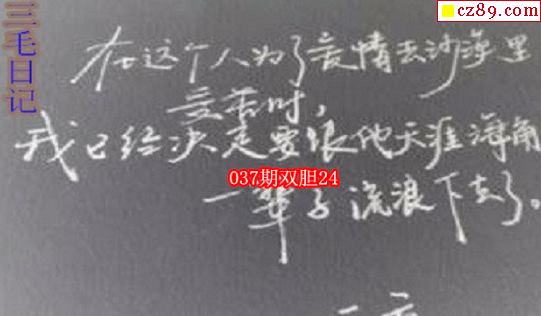 三毛日记
cz89.com
在这个人为了爱情去沙漠里
受苦时,
我已经决定要跟他天涯海角
037期双胆24
一辈子流浪下去了。